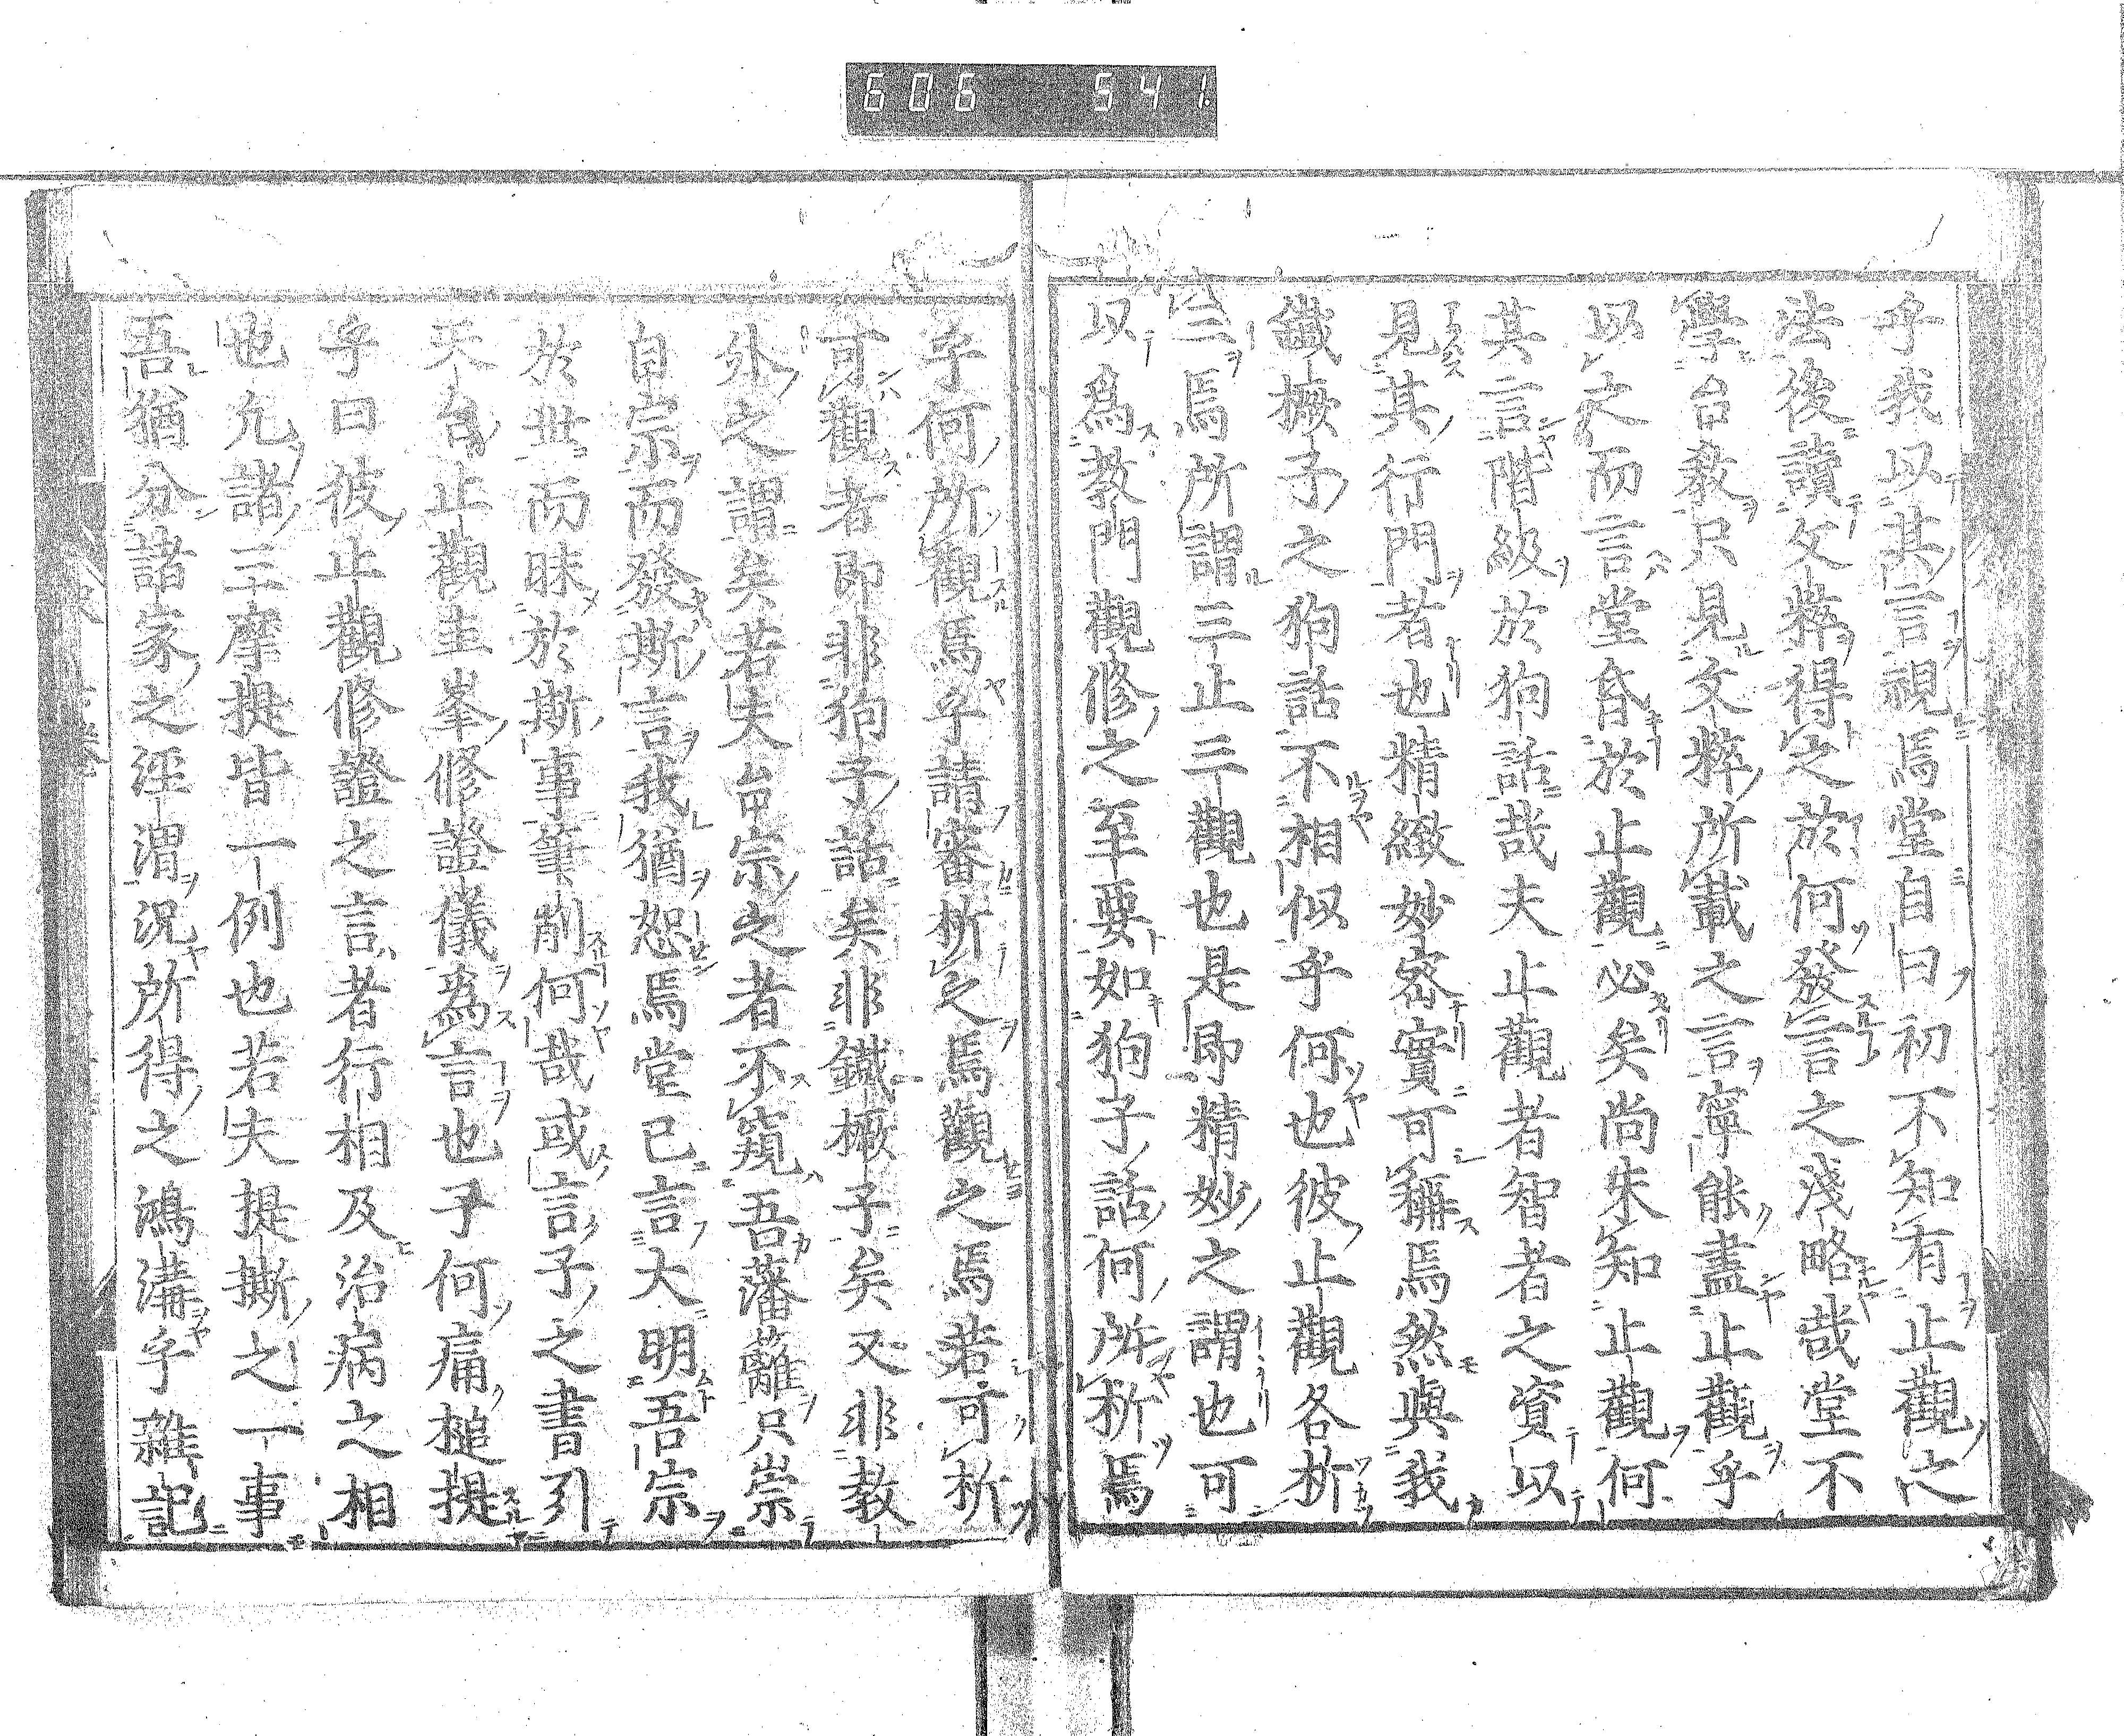 606 541
乎我以其言視焉堂自曰初不知有止觀之
法後讀文粹得之於何發言之淺略哉堂不
學台教只見文粹所載之言寧能盡止觀乎
以之而言堂昏於止觀必矣尚未知止觀何
其言階級於狗話哉夫止觀者智者之資以
見其行門者也精緻妙密實可稱焉然與我
鐵橛子之狗話不相似乎何也彼止觀各析
三焉所謂三止三觀也是即精妙之謂也可
以為教門觀修之至要如狗子話何所析焉
乎何所觀焉乎請審析之焉觀之焉若可析
可觀者即非狗子話矣非鐵橛子矣又非教
外之謂矣若夫台宗之者不窺吾藩籬只崇
自宗而發斯言我猶恕焉堂已言大明吾宗
於世而昧於斯事筆削何哉或言子之書引
天台止觀圭峯修證儀為言也子何痛槌提
乎曰彼止觀修證之言者行相及治病之相
也允諸三摩提皆一例也若夫提撕之一事
吾猶分諸家之涇渭況所得之鴻溝乎雜記